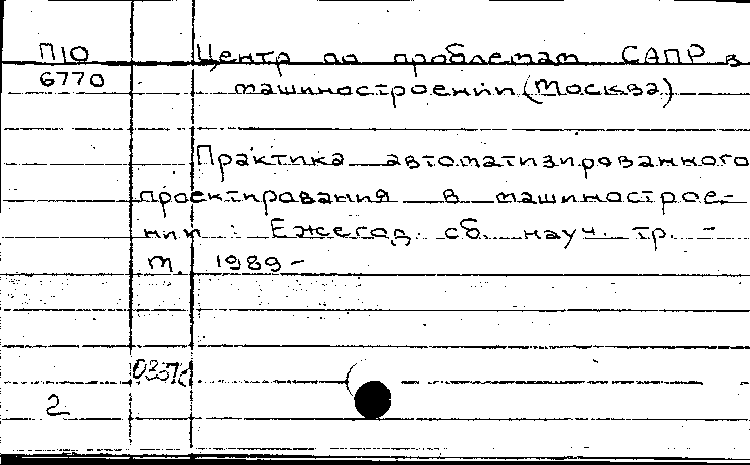 П10
6770
Центр по проблемам САПР в
машиностроении (Москва)
Практика автоматизированного
проектирования в машинострое-
нии : Ежегод. сб. науч. тр. -
М. 1989 -
2